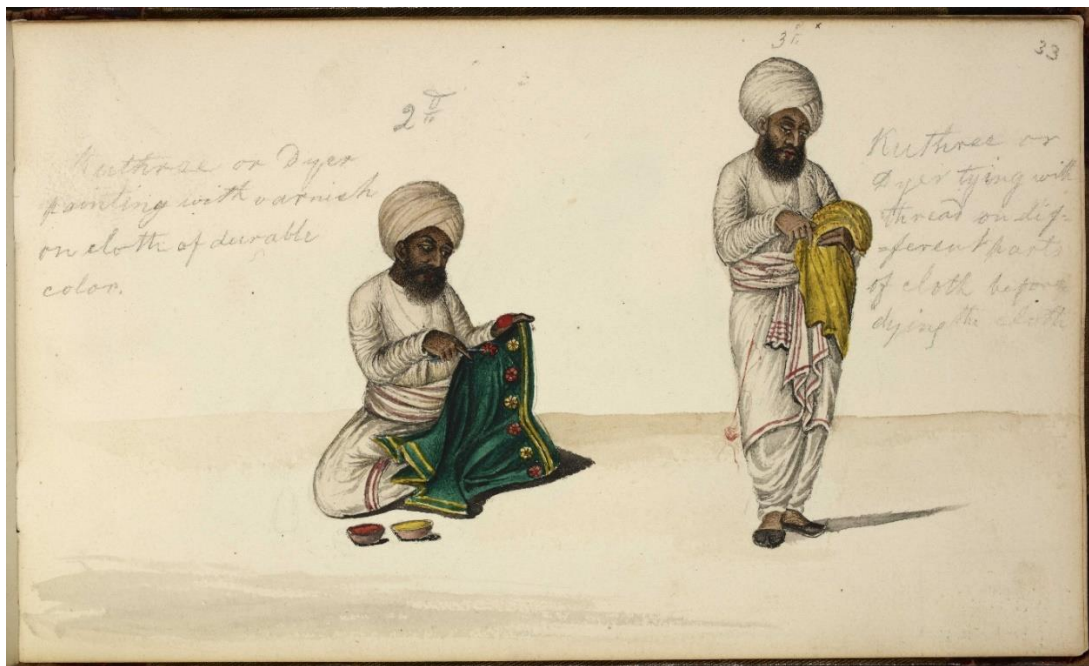 33
2
Kuthree or Dyer
painting with varnish
on cloth of durable
color.
3
Kuthree or
Dyer tying with
thread on dif-
-ferent parts
of cloth before
dying the cloth